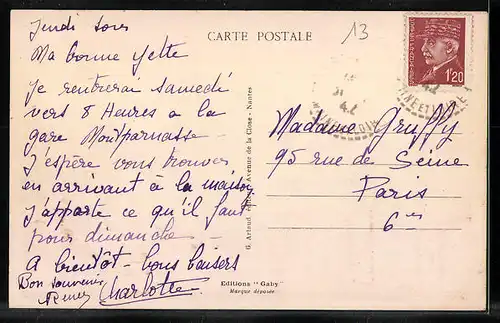 Jeudi soir
Ma bonne Yette
Je rentrerai samedi
vers 8 Heures a la
gare Montparnasse -
J'espère vous trouver
en arrivant à la maison
J'apporte ce qu'il faut
pour dimanche -
A bientôt - bons baisers
Bon souvenir
Charlotte
CARTE POSTALE
13
1f20
42
Madame Gruffy
95 rue de Seine
Paris
6e
G. Artaud, Avenue de la Close - Nantes
Editions "Gaby"
Marque déposée